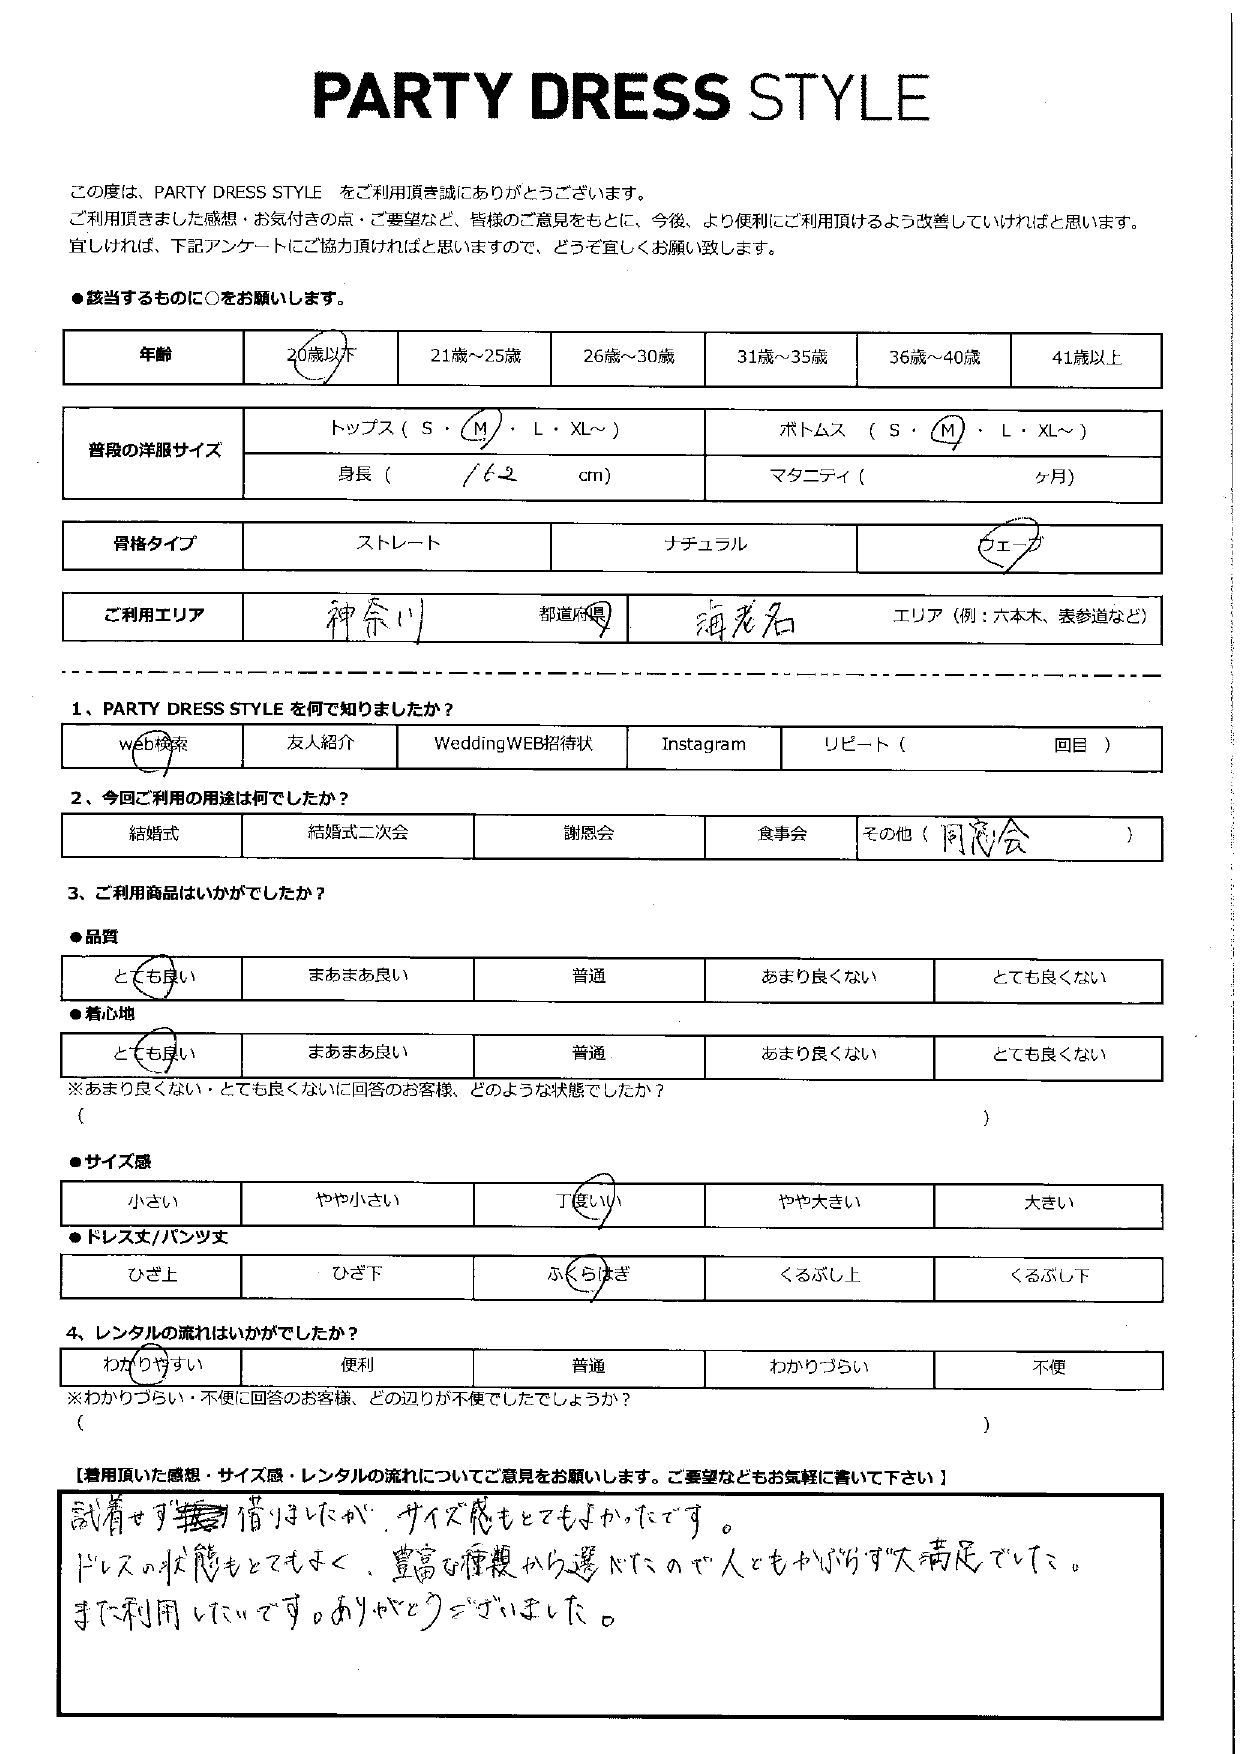 PARTY DRESS STYLE
この度は、PARTY DRESS STYLE をご利用頂き誠にありがとうございます。
ご利用頂きました感想・お気付きの点・ご要望など、皆様のご意見をもとに、今後、より便利にご利用頂けるよう改善していければと思います。
宜しければ、下記アンケートにご協力頂ければと思いますので、どうぞ宜しくお願い致します。
●該当するものに○をお願いします。
年齢 20歳以下 21歳～25歳 26歳～30歳 31歳～35歳 36歳～40歳 41歳以上
普段の洋服サイズ トップス ( S ・ M ・ L ・ XL～ ) ボトムス ( S ・ M ・ L ・ XL～ )
身長 ( 162 cm) マタニティ ( ヶ月)
骨格タイプ ストレート ナチュラル ウェーブ
ご利用エリア 神奈川 都道府県 海老名 エリア（例：六本木、表参道など）
1、PARTY DRESS STYLE を何で知りましたか？
web検索 友人紹介 WeddingWEB招待状 Instagram リピート ( 回目 )
2、今回ご利用の用途は何でしたか？
結婚式 結婚式二次会 謝恩会 食事会 その他 ( 同窓会 )
3、ご利用商品はいかがでしたか？
●品質
とても良い まあまあ良い 普通 あまり良くない とても良くない
●着心地
とても良い まあまあ良い 普通 あまり良くない とても良くない
※あまり良くない・とても良くないに回答のお客様、どのような状態でしたか？
( )
●サイズ感
小さい やや小さい 丁度いい やや大きい 大きい
●ドレス丈/パンツ丈
ひざ上 ひざ下 ふくらはぎ くるぶし上 くるぶし下
4、レンタルの流れはいかがでしたか？
わかりやすい 便利 普通 わかりづらい 不便
※わかりづらい・不便に回答のお客様、どの辺りが不便でしたでしょうか？
( )
【着用頂いた感想・サイズ感・レンタルの流れについてご意見をお願いします。ご要望などもお気軽に書いて下さい 】
試着せず借りましたが、サイズ感もとてもよかったです。
ドレスの状態もとてもよく、豊富な種類から選べたので人ともかぶらず大満足でした。
また利用したいです。ありがとうございました。